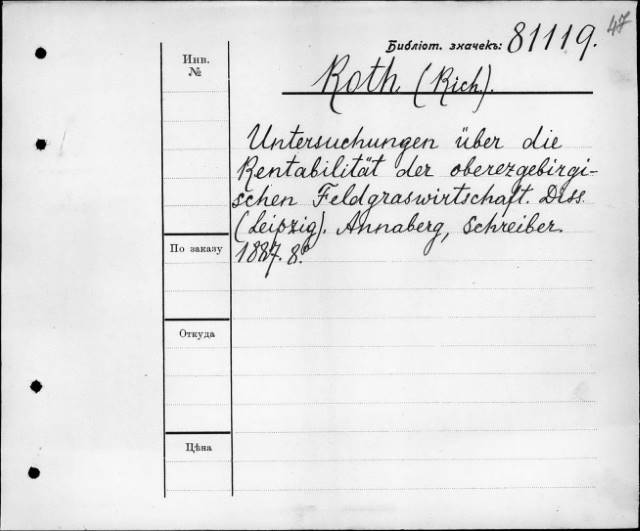 47
Библіот. значекъ: 81119.
Roth (Rich.).
Инв. №
Untersuchungen über die
Rentabilität der oberezgebirgi-
schen Feldgraswirtschaft. Diss.
(Leipzig). Annaberg, Schreiber
1887. 8º
По заказу
Откуда
Цѣна